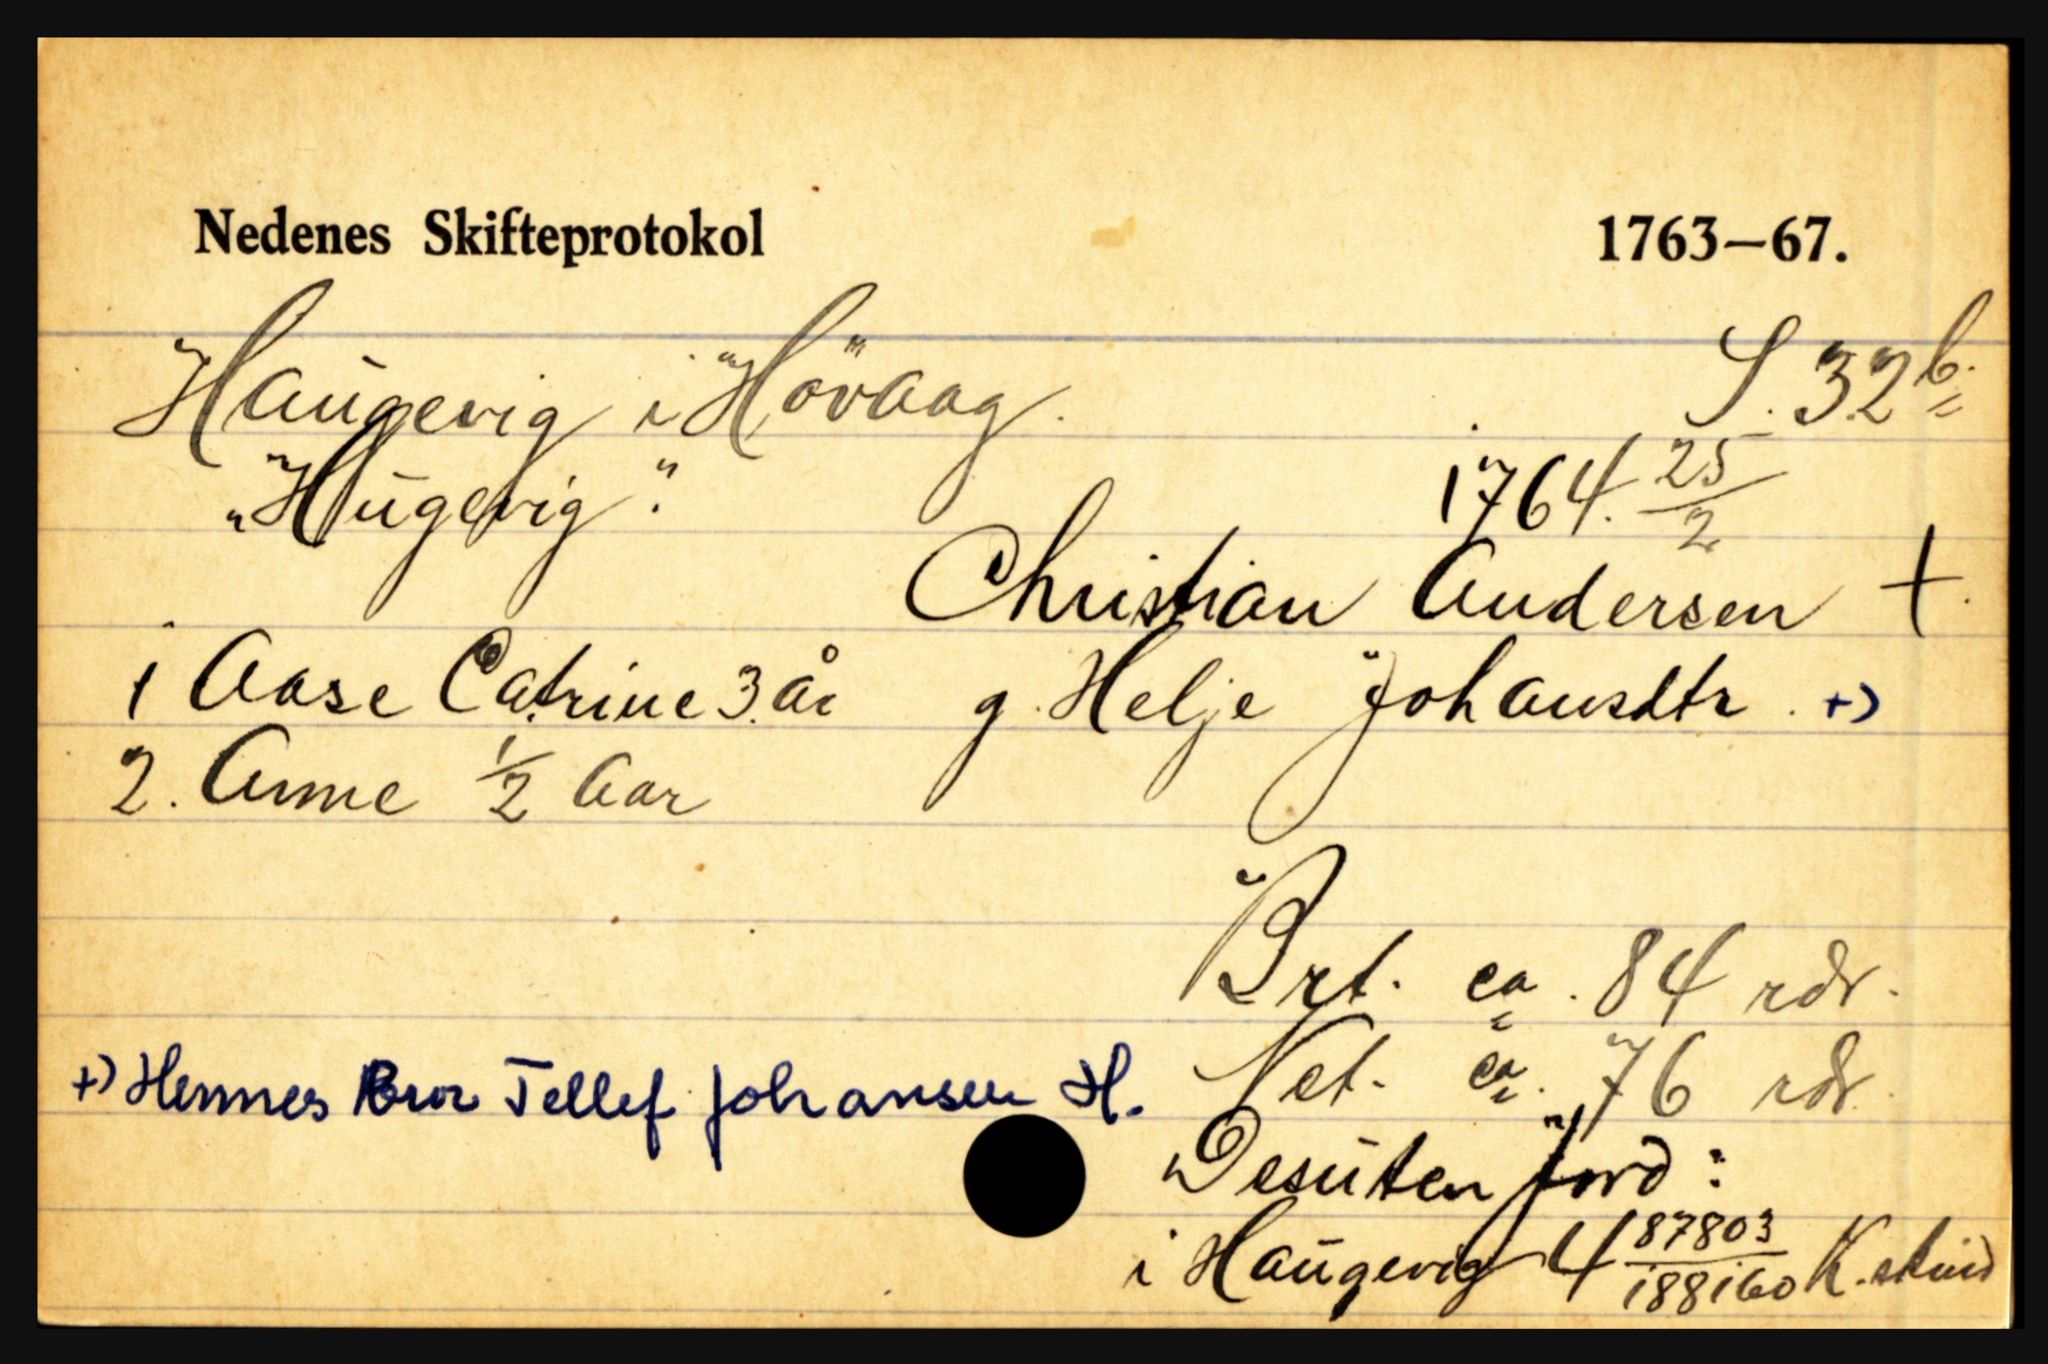 Nedenes Skifteprotokol 1763—67.
Haugevig i Høvaag. S. 32b.
„Hugevig". 1764. 25/2
Christian Andersen +.
1 Aase Catrine 3. år g. Helje Johansdtr. +)
2. Anne 1/2 Aar
Brt. ca. 84 rdr.
Net. ca. 76 rdr.
+) Hennes Bror Tellef Johansen H.
Desuten jord:
i Haugevig 4 87803/188160 K. skind